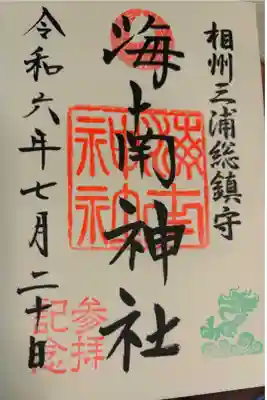 相州三浦総鎮守
海南神社
令和六年七月二十日
参拝
記念